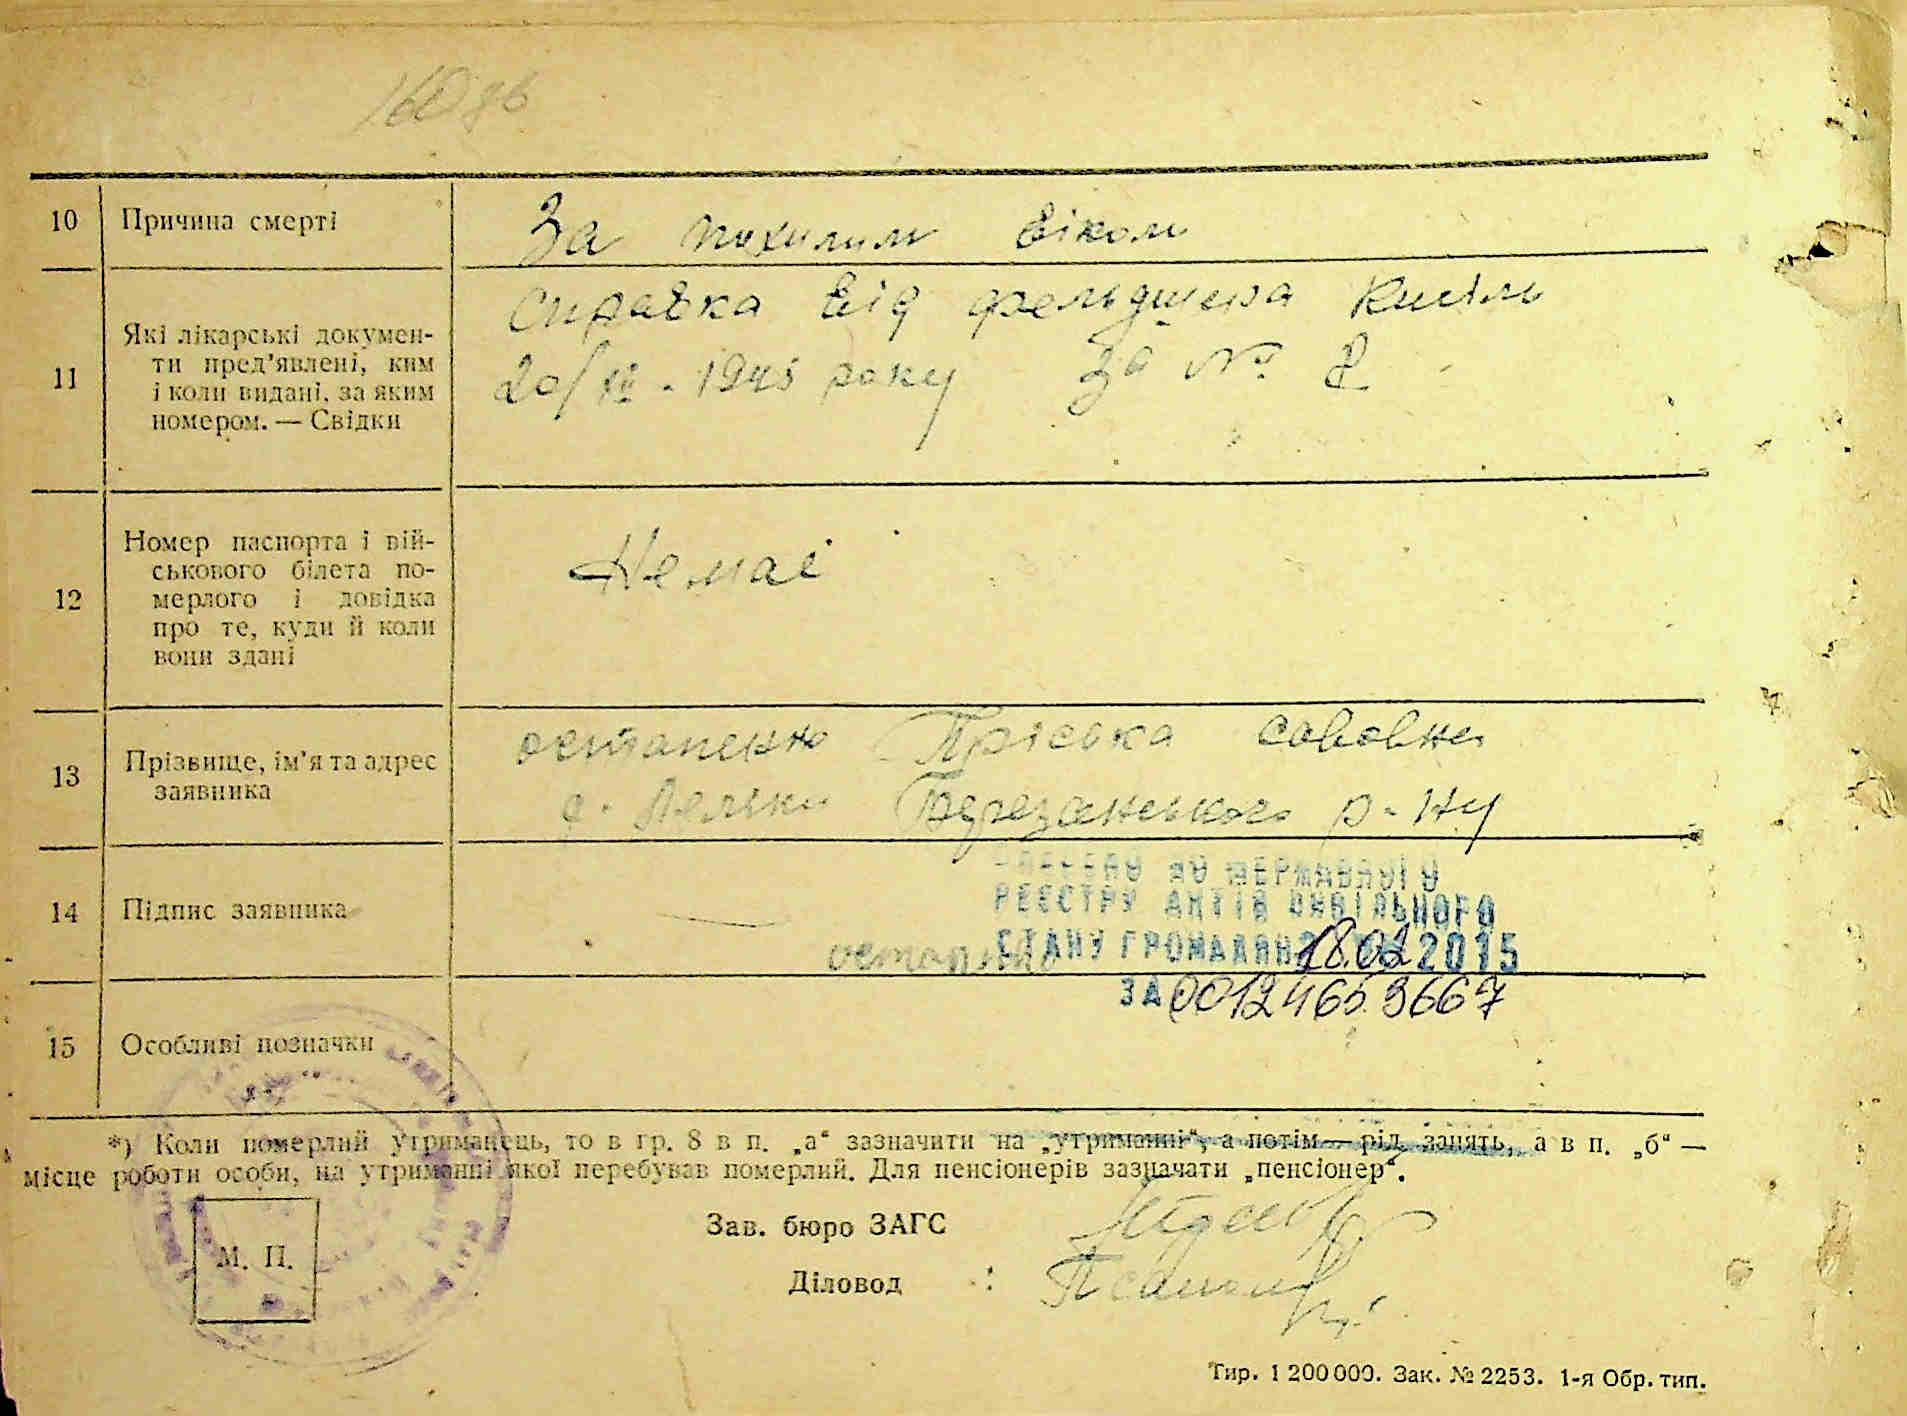 10 Причина смерті
За похилим віком
11 Які лікарські докумен-
ти пред’явлені, ким
і коли видані, за яким
номером. — Свідки
Справка від фельдшера Кисіль
20/XII - 1945 року за №
12 Номер паспорта і вій-
ськового білета по-
мерлого і довідка
про те, куди й коли
вони здані
Немає
13 Прізвище, ім’я та адрес
заявника
Остапенко Пріська Савовна
Березанського р-ну
14 Підпис заявника
ДО ДЕРЖАВНОГО
РЕЄСТРУ АКТІВ ЦИВІЛЬНОГО
СТАНУ ГРОМАДЯН 18.02 2015
ЗА 00124659667
15 Особливі позначки
*) Коли померлий утриманець, то в гр. 8 в п. „а“ зазначити на „утриманні“, а потім — рід занять, а в п. „б“ —
місце роботи особи, на утриманні якої перебував померлий. Для пенсіонерів зазначати „пенсіонер“.
М. П.
Зав. бюро ЗАГС
Діловод :
Тир. 1 200 000. Зак. № 2253. 1-я Обр. тип.